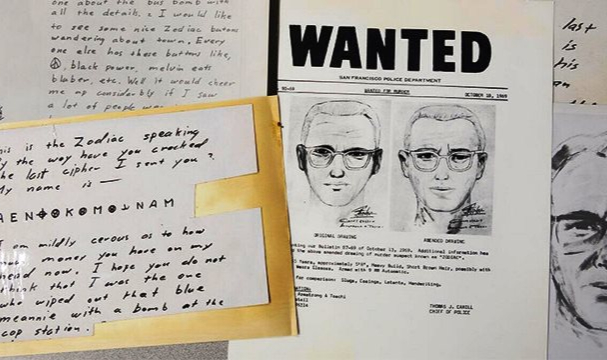 one about the bus bomb with
all the details. I would like
to see some nice Zodiac butons
wandering about town. Every
one else has these buttons like,
black power, melvin eats
blubber, etc. Well it would cheer
me up considerbly if I saw
a lot of people
is is the Zodiac speaking
the way have you cracked
he last cipher I sent you?
My name is —
AEN⊕⊗K⊗M⊗⅃NAM
am mildly cerous as to how
money you have on my
head now. I hope you do not
think that I was the one
who wiped out that blue
meannie with a bomb at the
cop station.
WANTED
SAN FRANCISCO POLICE DEPARTMENT
WANTED FOR MURDER
OCTOBER 18, 1969
ORIGINAL DRAWING
AMENDED DRAWING
our Bulletin 87-69 of October 13, 1969. Additional information has
the above amended drawing of murder suspect known as "ZODIAC".
Years, approximately 5'8", Heavy Build, Short Brown Hair, possibly with
Glasses. Armed with 9 MM Automatic.
for comparison: Slugs, Casings, Latents, Handwriting.
Armstrong & Toschi
THOMAS J. CAHILL
CHIEF OF POLICE
last
is
his